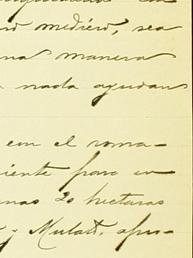 mediero, sea
na manera
nada ayudan
con el roma-
iente para co-
nas 20 hectareas
y Mulatt, apro-